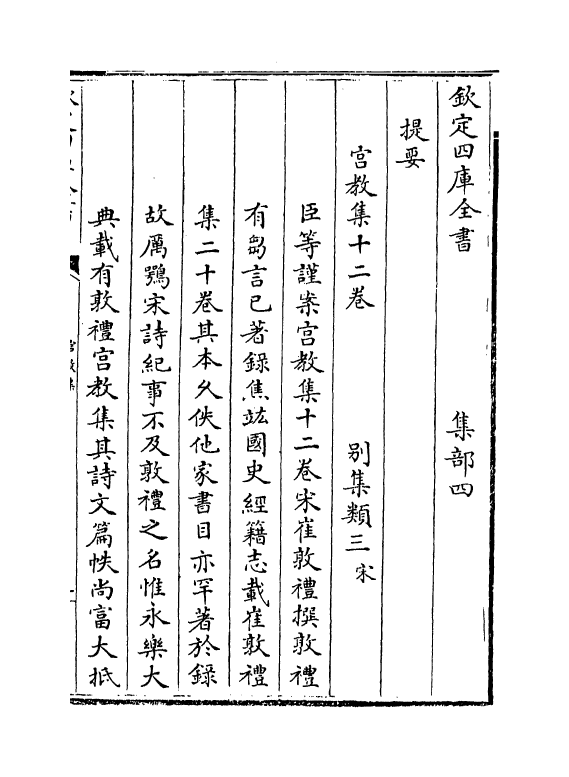 欽定四庫全書　集部四
提要
宫教集十二卷　別集類三宋
臣等謹案宫教集十二卷宋崔敦禮撰敦禮
有芻言已著錄焦竑國史經籍志載崔敦禮
集二十卷其本久佚他家書目亦罕著於錄
故厲鶚宋詩紀事不及敦禮之名惟永樂大
典載有敦禮宫教集其詩文篇帙尚富大抵
宫教集